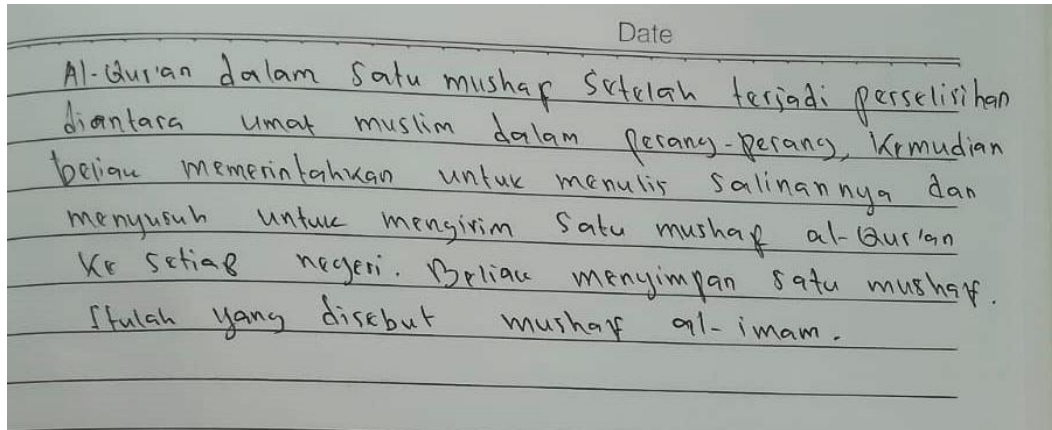 Date
Al-Qur'an dalam satu mushaf setelah terjadi perselisihan
diantara umat muslim dalam perang-perang, kemudian
beliau memerintahkan untuk menulis salinannya dan
menyusuh untuk mengirim satu mushaf al-Qur'an
ke setiap negeri. Beliau menyimpan satu mushaf.
Itulah yang disebut mushaf al-imam.